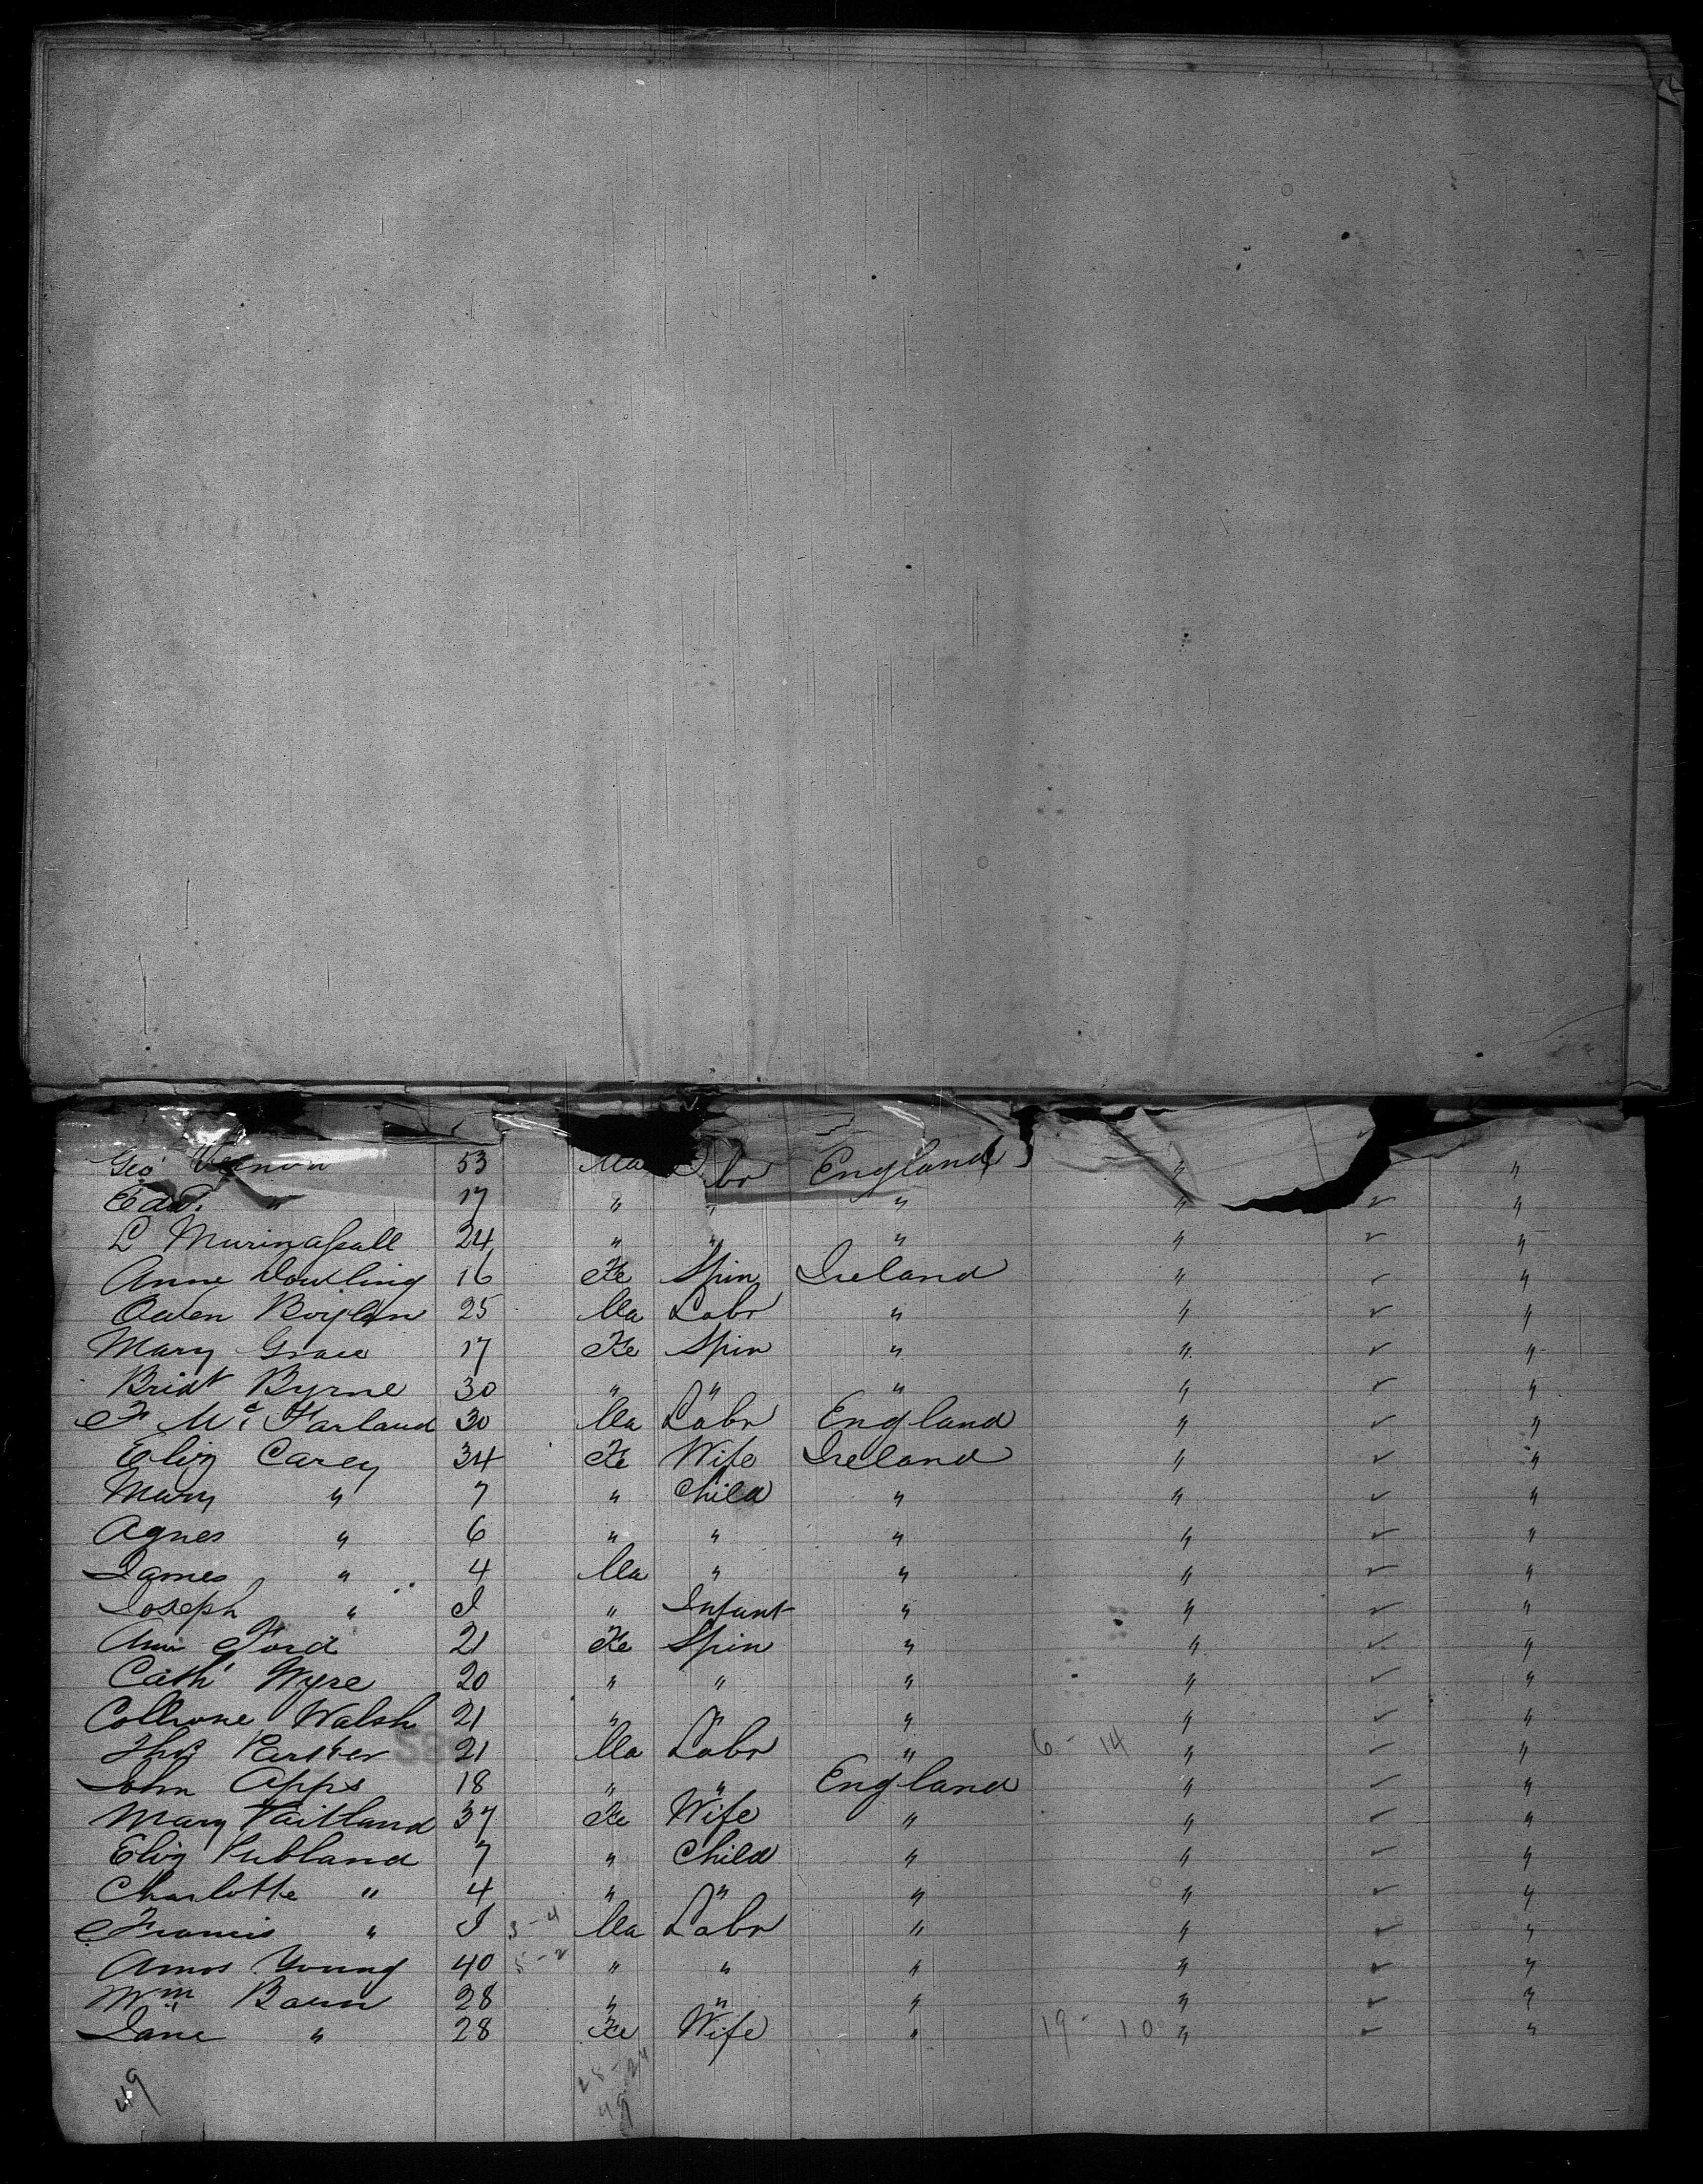 Geo Vernon 53 Ma Labr England " "
Edwd. " 17 " " " " ✓ "
L 24 " " " " ✓ "
Anne Dowling 16 Fe Spin Ireland " ✓ "
Owen Boylan 25 Ma Labr " " ✓ "
Mary Grace 17 Fe Spin " " ✓ "
Bridt Byrne 30 " " " " ✓ "
F Mc Farland 30 Ma Labr England " ✓ "
Eliz Carey 34 Fe Wife Ireland " ✓ "
Mary " 7 " Child " " ✓ "
Agnes " 6 " " " " ✓ "
James " 4 Ma " " " ✓ "
Joseph " I " Infant " " ✓ "
Ann Ford 21 Fe Spin " " ✓ "
Cath Wyse 20 " " " " ✓ "
Walsh 21 " " " " ✓ "
Thos 21 Ma Labr " 6 - 14 " ✓ "
John Apps 18 " " England " ✓ "
Mary 37 Fe Wife " " ✓ "
Eliz 7 " Child " " ✓ "
Charlotte " 4 " " " " ✓ "
Francis " I 3 - 4 Ma Labr " " ✓ "
Amos Young 40 5 - 2 " " " " ✓ "
Wm 28 " " " " ✓ "
Jane " 28 Fe Wife " 19 - 10 " ✓ "
28 - 24
49 49